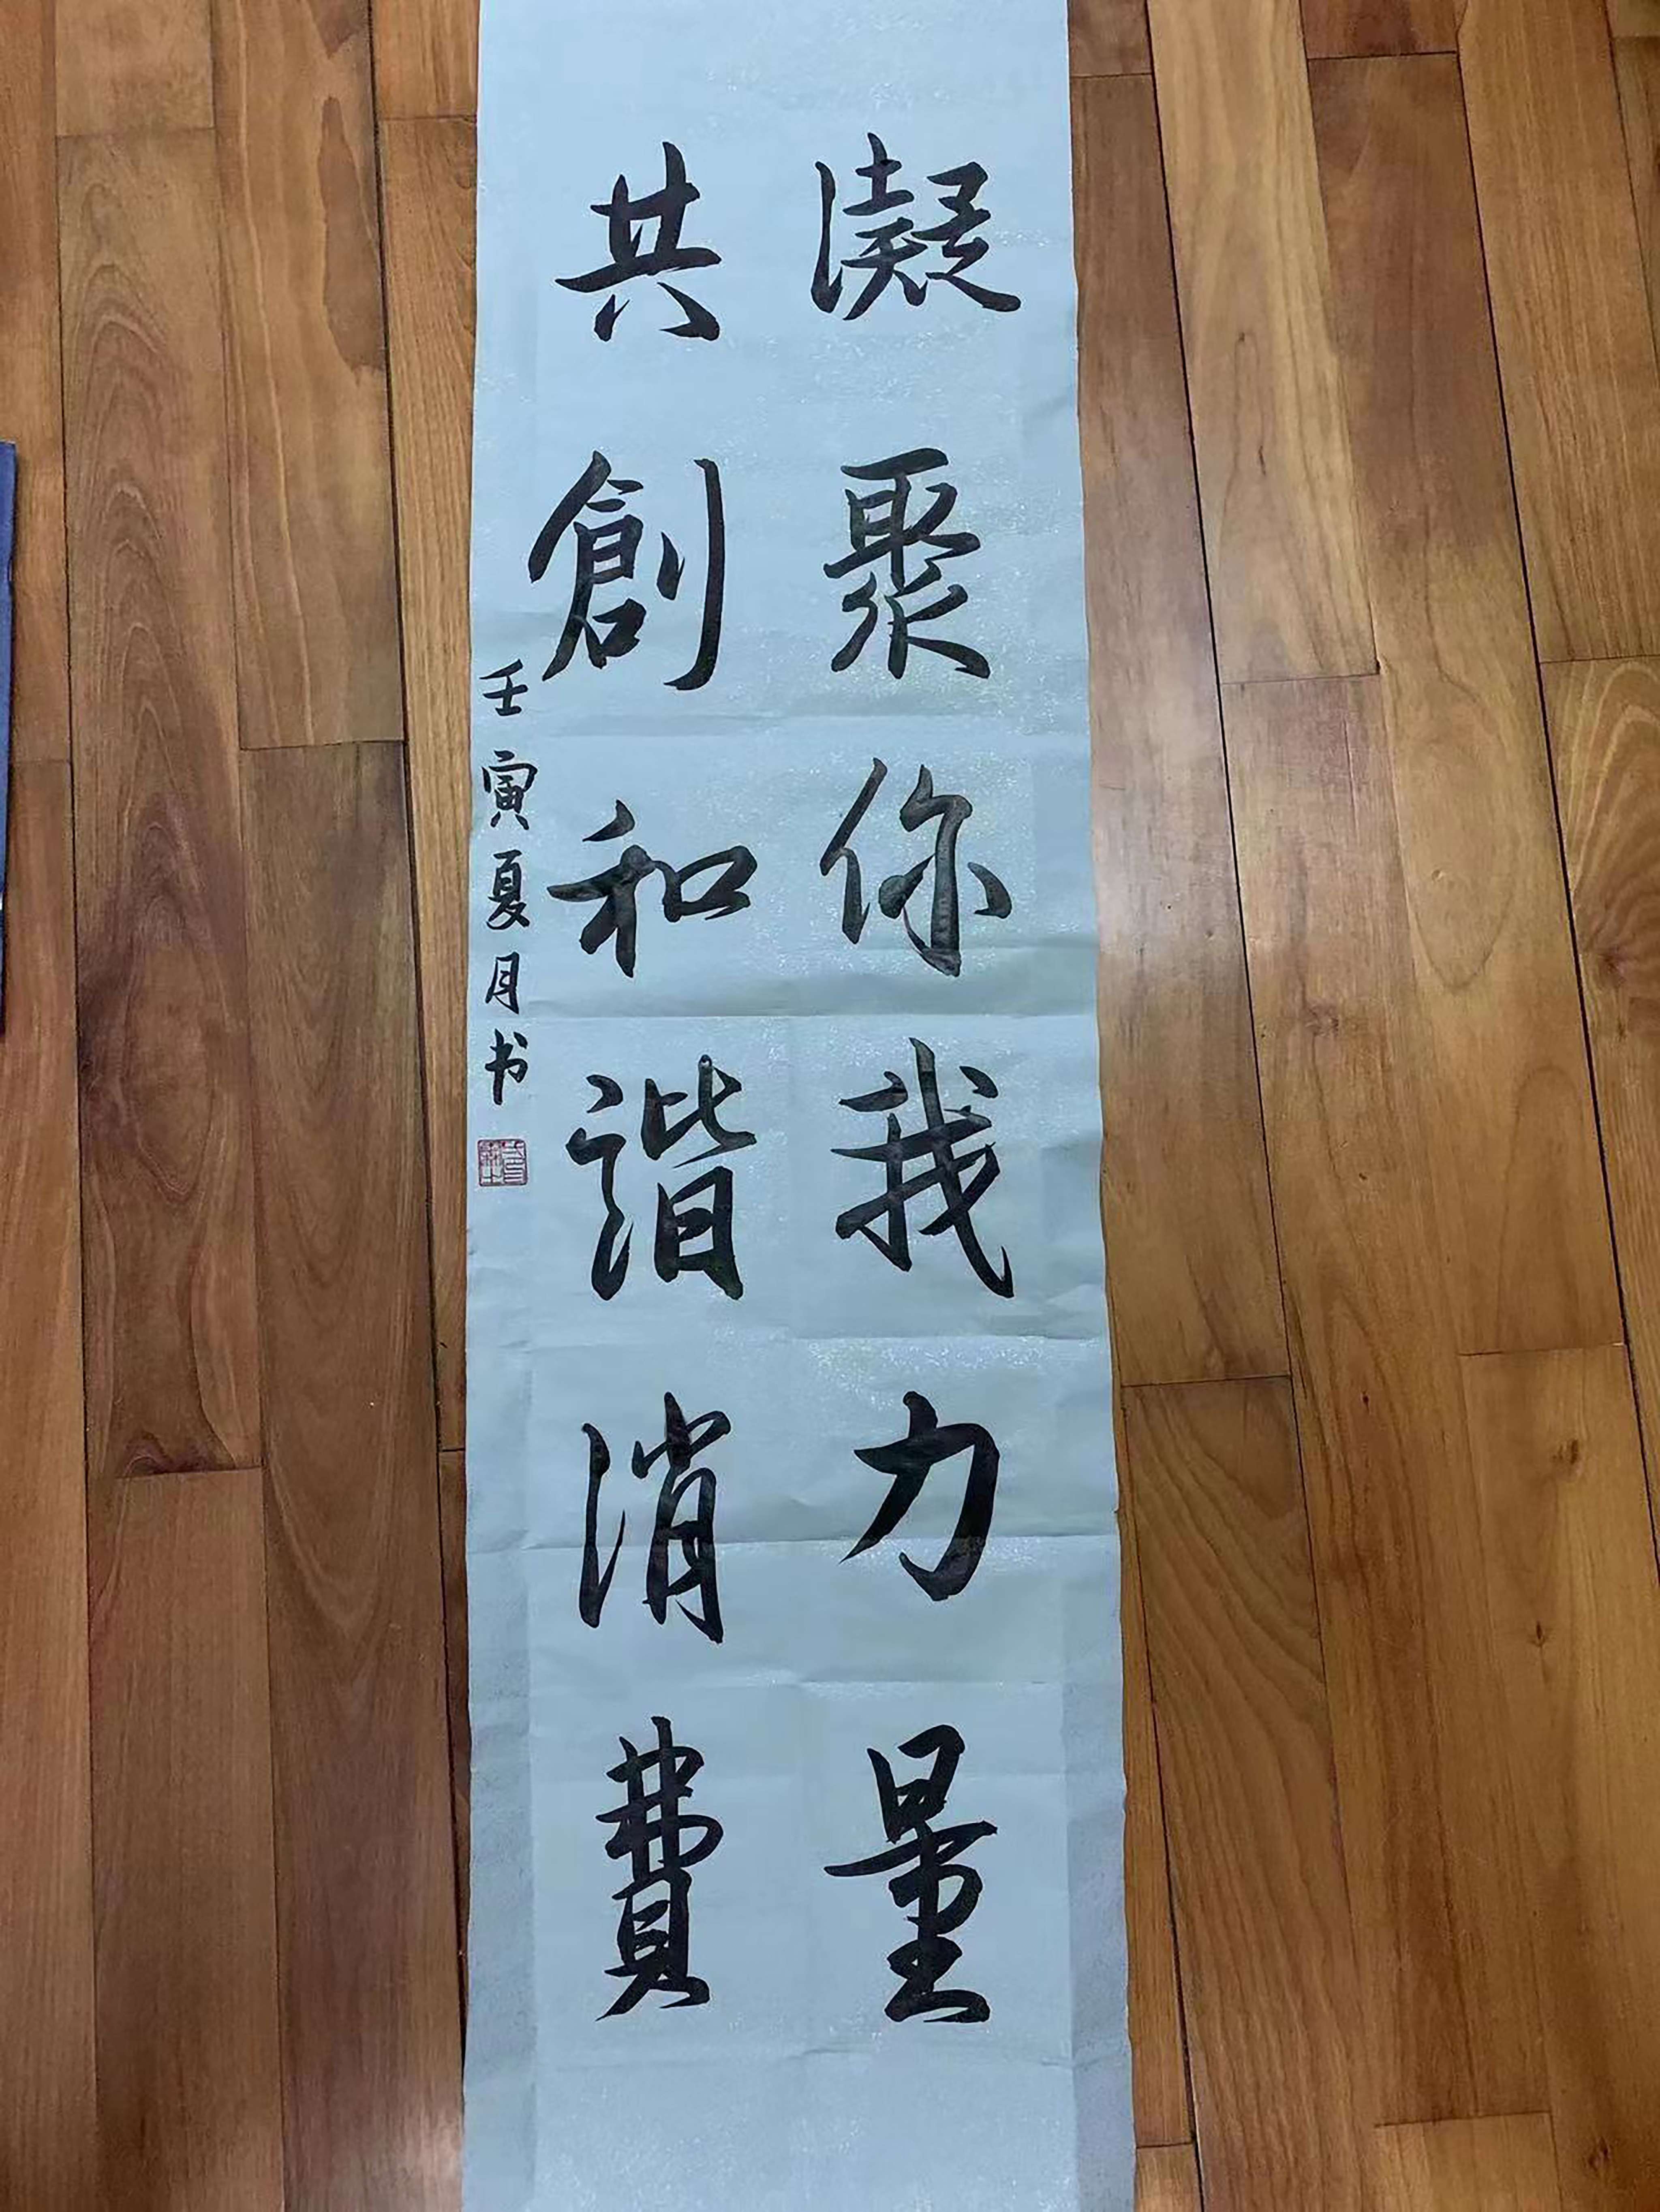 凝聚你我力量
共創和諧消費
壬寅夏月书